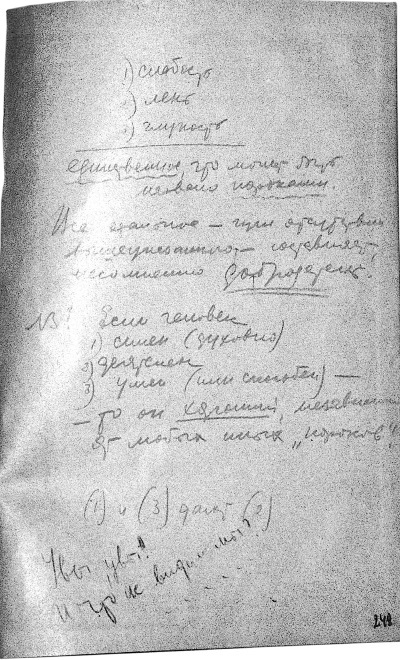 1) слабость
2) лень
3) глупость
единственное, что может быть
названо пороками.
Все остальное – при отсутствии
вышеуказанного – составляет,
несомненно добродетель.
NB! Если человек
1) силен (духовно)
2) деятелен
3) умен (или способен) –
– то он хороший, независимо
от любых иных „пороков“!
(1) и (3) дают (2)
Увы, увы!
И что ж видим мы?
248